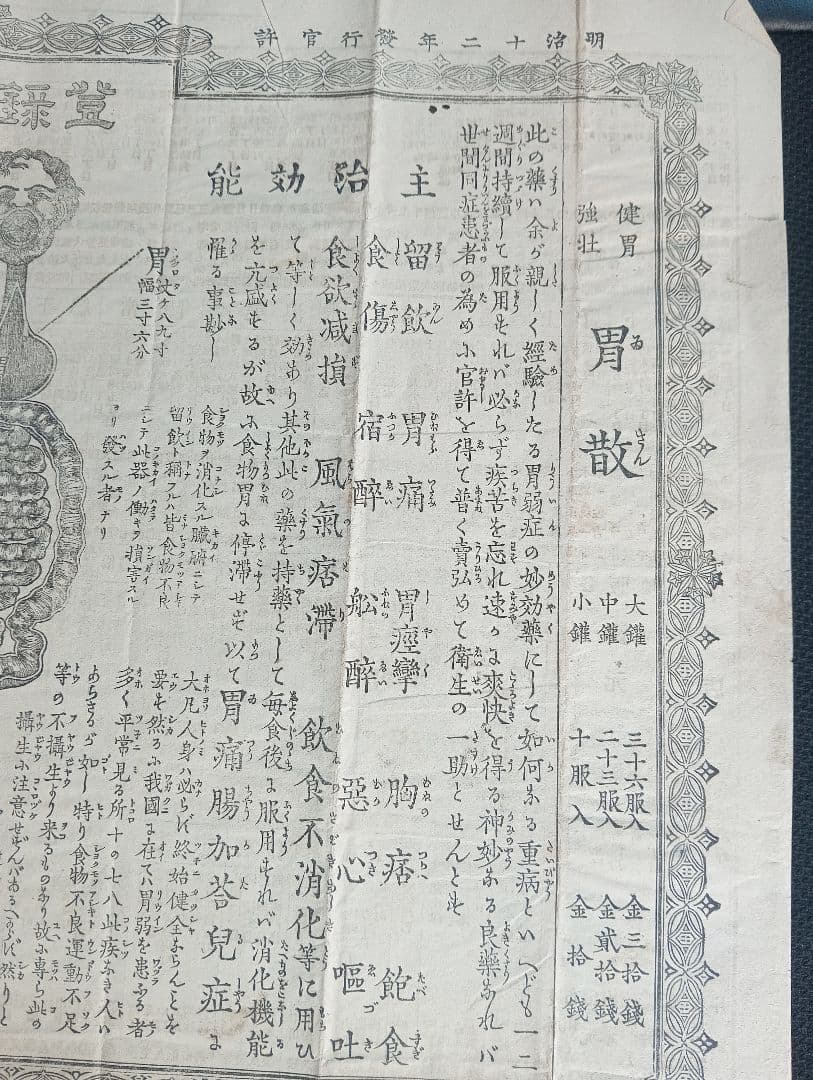 明治十二年發行官許
健胃
強壯
胃散
大鑵 三十六服入 金三拾錢
中鑵 二十三服入 金貳拾錢
小鑵 十服入 金拾錢
此の藥ハ余が親しく經驗したる胃弱症の妙効藥にして如何なる重病といへども一二
週間持續して服用すれバ必らず疾苦を忘れ速かに爽快を得る神妙なる良藥なれバ
世間同症患者の為めに官許を得て普く賣弘めて衛生の一助とせんとす
主治効能
留飲 胃痛 胃痙攣 胸痞 飽食
食傷 宿醉 舩醉 惡心 嘔吐
食欲減損 風氣痞滯 飲食不消化等に用ひ
て等しく効あり其他此の藥を持藥として毎食後に服用すれバ消化機能
を亢盛するが故に食物胃に停滯せず以て胃痛腸加荅兒症に
罹る事尠し
胃
丈ケ八九寸
幅三寸六分
食物ヲ消化スル臟腑ニシテ
留飲ト稱フルハ皆食物不良
ニシテ此器ノ働キヲ損害スル
ヨリ發スル者ナリ
大凡人身ハ必らず終始健全ならんことを
要す然るに我國に在てハ胃弱を患ふる者
多く平常見る所十の七八此疾なき人ハ
あらざるが如し特り食物不良運動不足
等の不攝生より来るものあり故に專ら此の
攝生に注意せずんバあるべからず然りと
登録